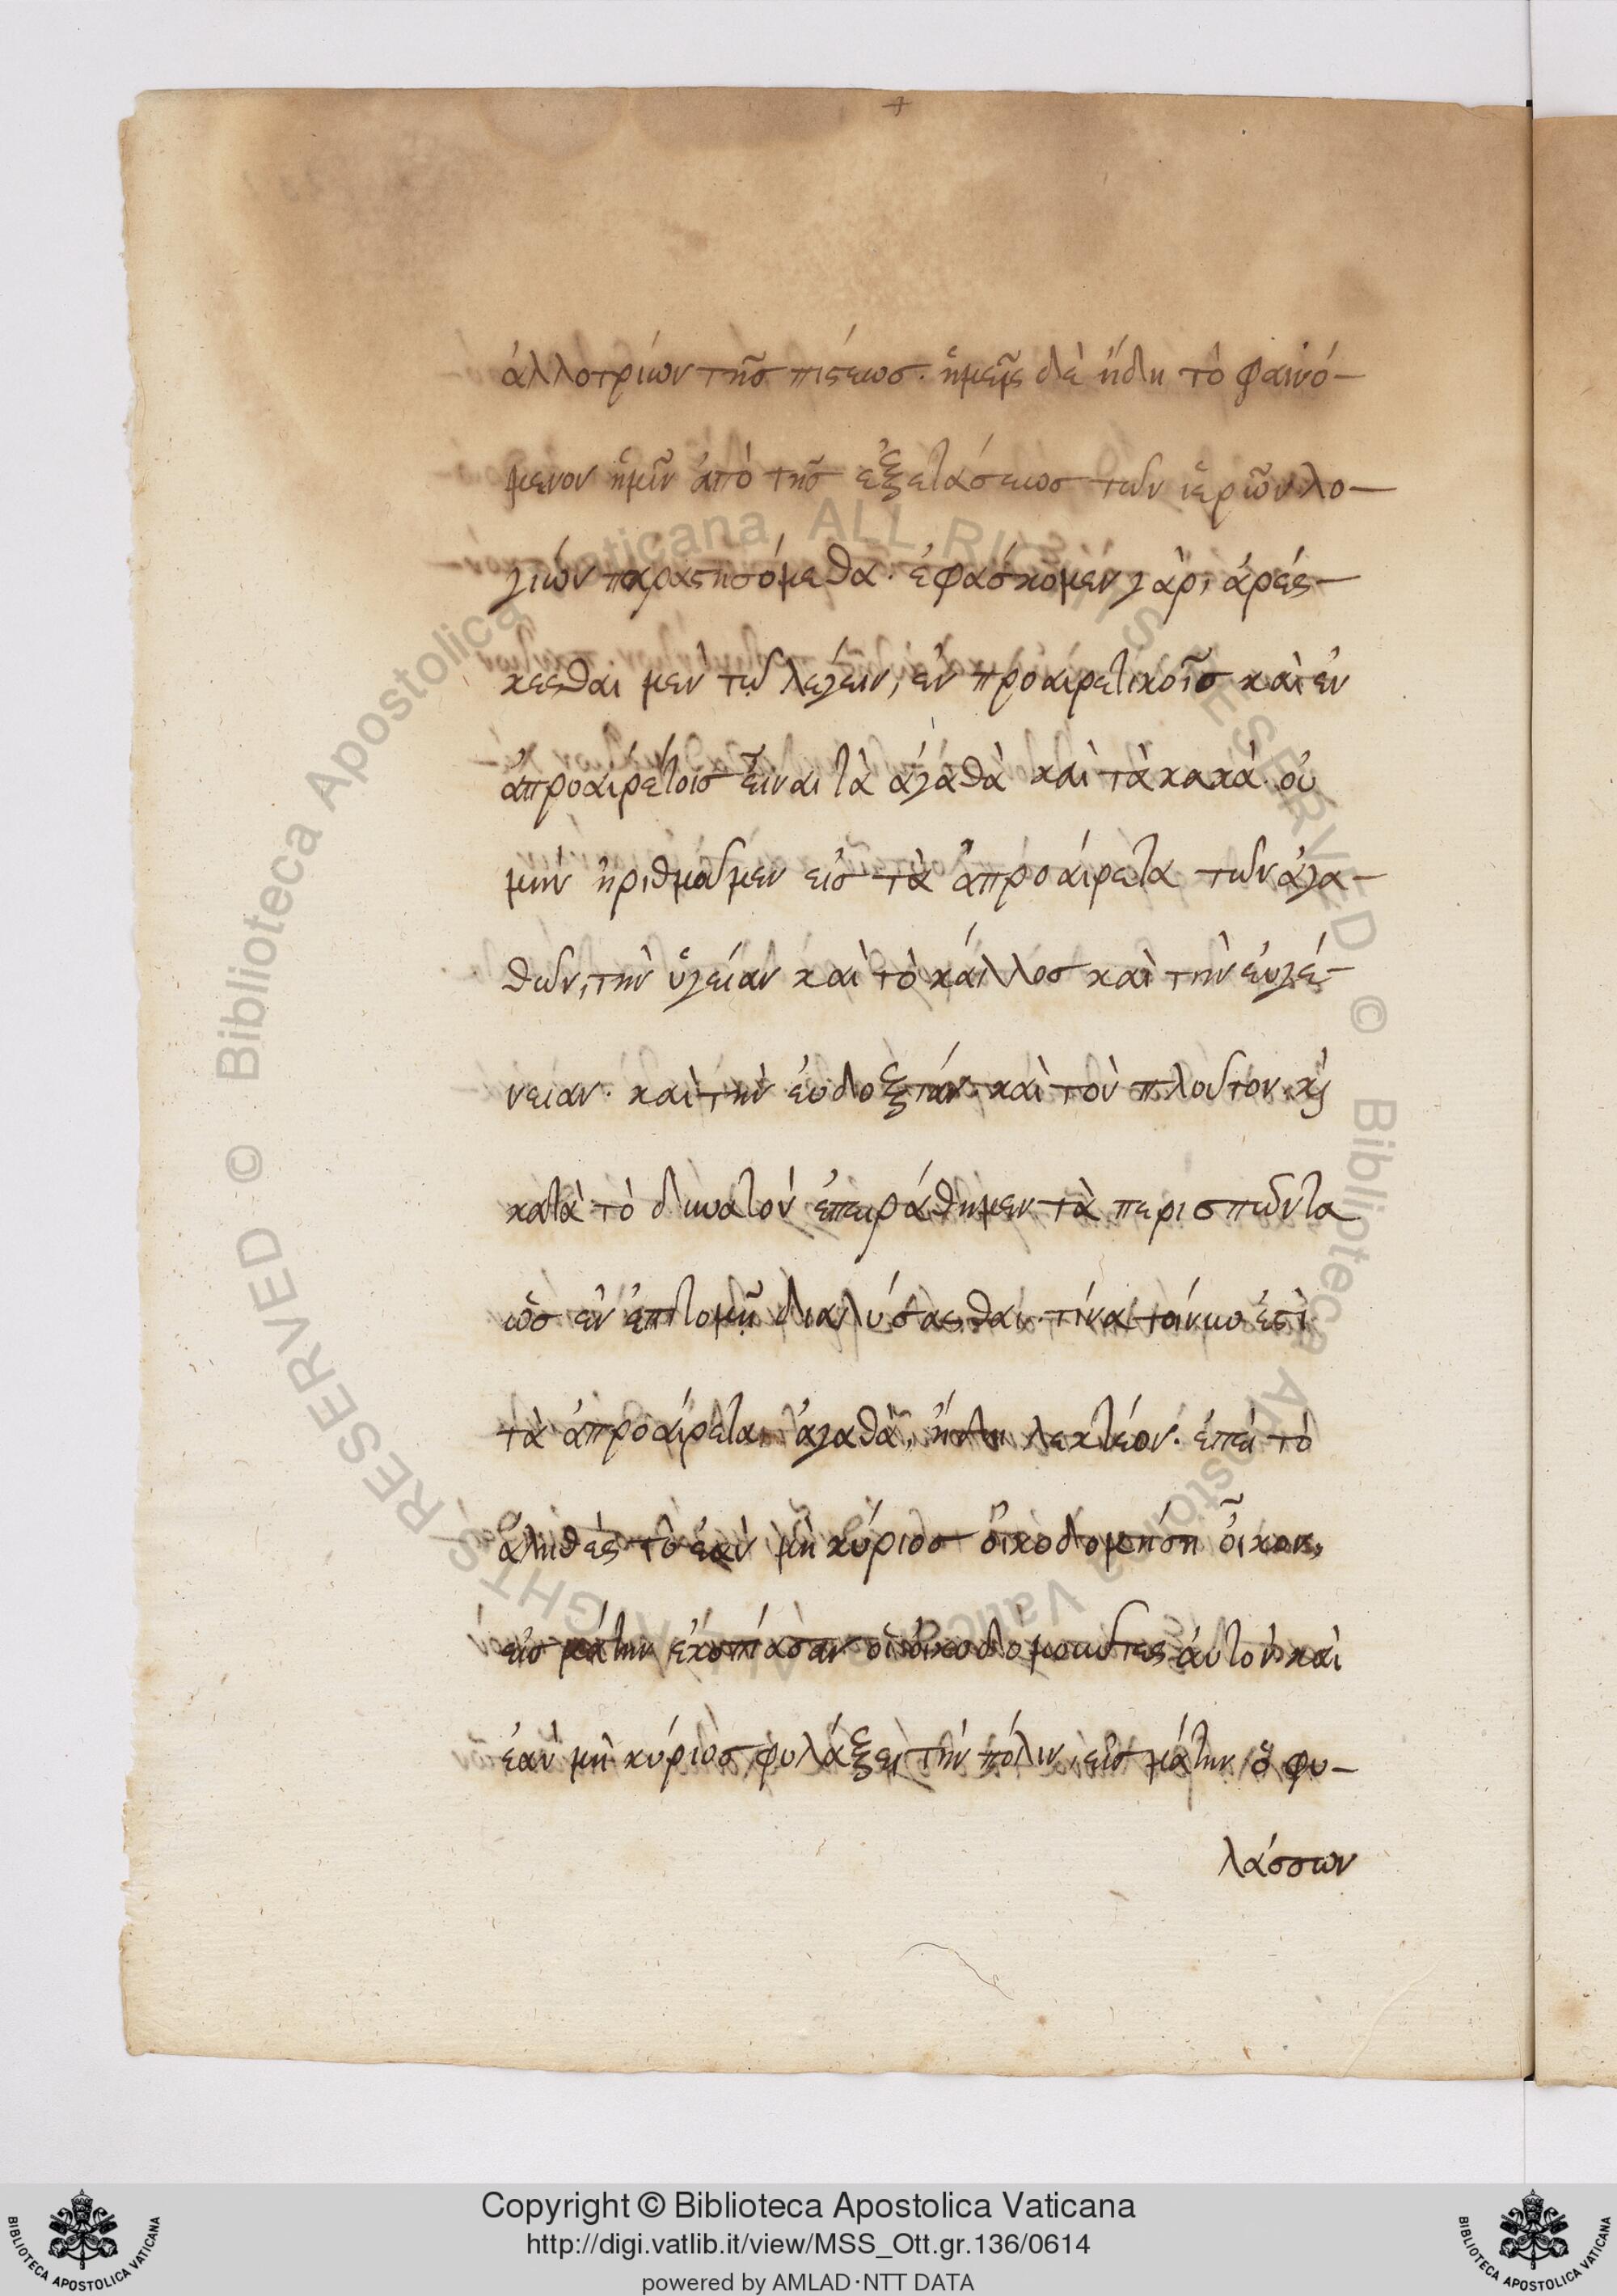 ἀλλοτρίων τῆς πίστεως. ἡμεῖς δὲ ἤδη τὸ φαινό-
μενον ἡμῖν ἀπὸ τῆς ἐξετάσεως τῶν ἱερῶν λο-
γίων παραστησόμεθα. ἐφάσκομεν γὰρ, ἀρέσ-
κεσθαι μὲν τῷ λέγειν, ἐν προαιρετικοῖς καὶ ἐν
ἀπροαιρέτοις εἶναι τὰ ἀγαθὰ καὶ τὰ κακά. οὐ
μὴν ἠριθμοῦμεν εἰς τὰ ἀπροαίρετα τῶν ἀγα-
θῶν, τὴν ὑγείαν καὶ τὸ κάλλος καὶ τὴν εὐγέ-
νειαν. καὶ τὴν εὐδοξίαν. καὶ τὸν πλοῦτον. κὶ
κατὰ τὸ δυνατὸν ἐπειράθημεν τὰ περισπῶντα
ὡς ἐν ἐπιτομῇ διαλύσασθαι. τίνα τοίνυν ἐστὶ
τὰ ἀπροαίρετα ἀγαθὰ, ἤδη λεκτέον. ἐπεὶ τὸ
ἀληθὲς τὸ ἐὰν μὴ κύριος οἰκοδομήσῃ οἶκον,
εἰς μάτην ἐκοπίασαν οἱ οἰκοδομοῦντες αὐτὸν καὶ
ἐὰν μὴ κύριος φυλάξει τὴν πόλιν, εἰς μάτην ὁ φυ-
λάσσων
Copyright © Biblioteca Apostolica Vaticana
http://digi.vatlib.it/view/MSS_Ott.gr.136/0614
powered by AMLAD·NTT DATA
BIBLIOTECA APOSTOLICA VATICANA
BIBLIOTECA APOSTOLICA VATICANA
© Biblioteca Apostolica Vaticana ALL RIGHTS RESERVED © Biblioteca Apostolica Vaticana ALL RIGHTS RESERVED